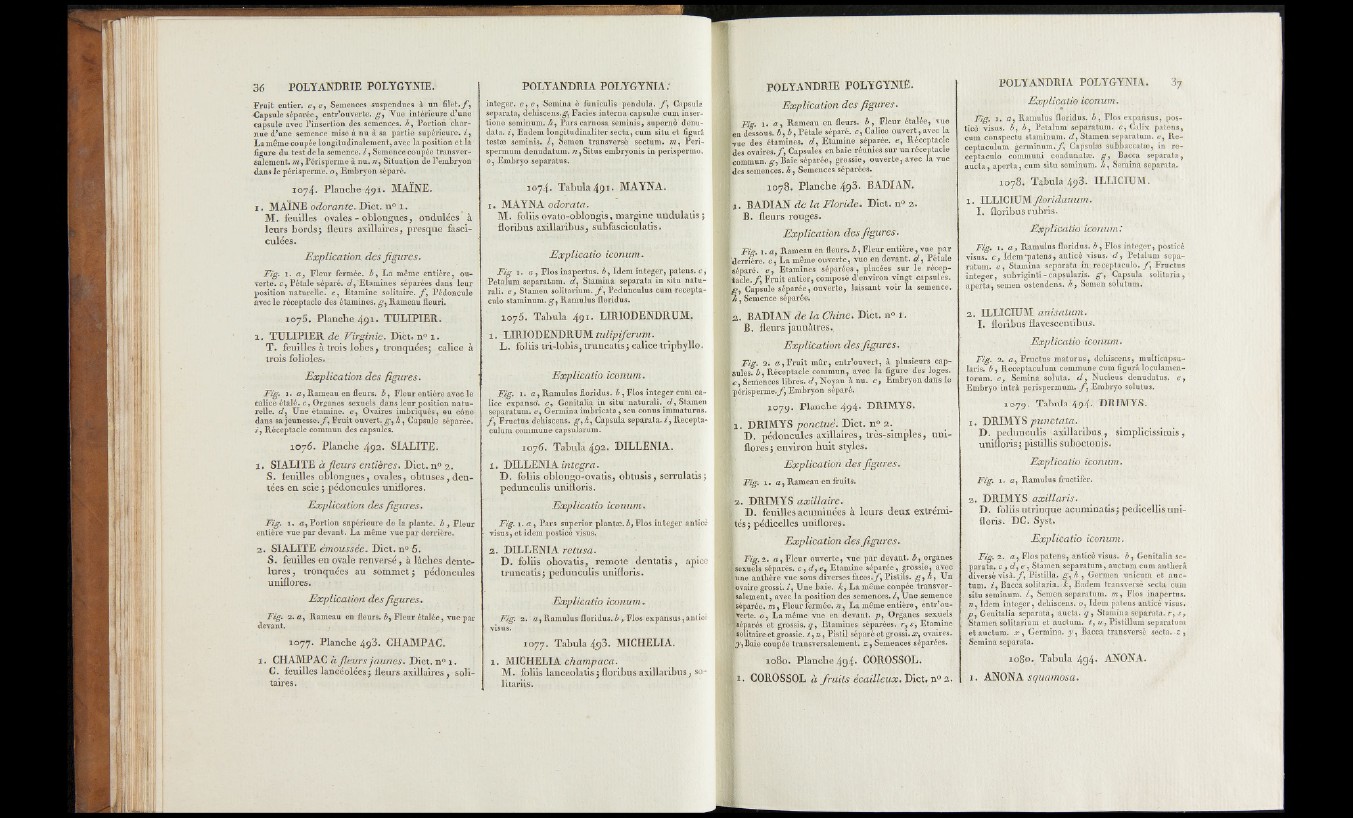 36 POLYANDRIE POLYGYNIE.
Fruit entier. c, c, Semences suspendues à un filet. f,
Capsule séparée, entr'ouverte. g, Vue intérieure d'une
capsule avec l'insertion des semences. h, Portion char-
nue d'une semence mise à nu à sa partie supérieure. i,
La même coupée longitudinalement, avec la position et la
figure du test de la semence. l, Semence coupée transver-
salement. m, Périsperme à nu. n, Situation de l'embryon
dans le périsperme. o, Embryon séparé.
1074. Planche 491. MAÏNE.
1. MAÏNE odorante. Dict. nº 1.
M. feuilles ovales-oblongues, ondulées à
leurs bords; fleurs axillaires, presque fasci-
culées.
Explication des figures.
Fig. 1. a, Fleur fermée. b, La même entière, ou-
verte. c, Pétale séparé. d, Etamines séparées dans leur
position naturelle. e, Etamine solitaire. f, Pédoncule
avec le réceptacle des étamines. g, Rameau fleuri.
1075. Planche 491. TULIPIER.
1. TULIPIER de Virginie. Dict. nº 1.
T. feuilles à trois lobes, tronquées; calice à
trois folioles.
Explication des figures.
Fig. 1. a, Rameau en fleurs. b, Fleur entière avec le
calice étalé. c, Organes sexuels dans leur position natu-
relle. d, Une étamine. e, Ovaires imbriqués, ou cône
dans sa jeunesse. f, Fruit ouvert. g, h, Capsule séparée.
i, Réceptacle commun des capsules.
1076. Planche 492. SIALITE.
1. SIALITE à fleurs entières. Dict. nº 2.
S. feuilles oblongues, ovales, obtuses, den-
tées en scie; pédoncules uniflores.
Explication des figures.
Fig. 1. a, Portion supérieure de la plante. b, Fleur
entière vue par devant. La même vue par derrière.
2. SIALITE émoussée. Dict. nº 5.
S. feuilles en ovale renversé, à lâches dente-
lures, tronquées au sommet; pédoncules
uniflores.
Explication des figures.
Fig. 2. a, Rameau en fleurs. b, Fleur étalée, vue par
devant.
1077. Planche 493. CHAMPAC.
1. CHAMPAC à fleurs jaunes. Dict. nº 1.
C. feuilles lancéolées; fleurs axillaires, soli-
taires.
POLYANDRIA POLYGYNIA.
integer. c, c, Semina è funiculis pendula. f, Capsula
separata, dehiscens. g, Facies interna capsulæ cum inser-
tione seminum. h, Pars carnosa seminis, supernè denu-
data. i, Eadem longitudinaliter secta, cum situ et figurâ
testæ seminis. l, Semen transversè sectum. m, Peri-
spermum denudatum. n, Situs embryonis in perispermo.
o, Embryo separatus.
1074. Tabula 491. MAYNA.
1. MAYNA odorata.
M. foliis ovato-oblongis, margine undulatis;
floribus axillaribus, subfasciculatis.
Explicatio iconum.
Fig 1. a, Flos inapertus. b, Idem integer, patens. c,
Petalum separatum. d, Stamina separata in situ natu-
rali. e, Stamen solitarium. f, Pedunculus cum recepta-
culo staminum. g, Ramulus floridus.
1075. Tabula 491. LIRIODENDRUM.
1. LIRIODENDRUM tulipiferum.
L. foliis tri-lobis, truncatis; calice triphyllo.
Explicatio iconum.
Fig. 1. a, Ramulus floridus. b, Flos integer cum ca-
lice expanso. c, Genitalia in situ naturali. d, Stamen
separatum. e, Germina imbricata, seu conus immaturus.
f, Fructus dehiscens. g, h, Capsula separata. i, Recepta-
culum commune capsularum.
1076. Tabula 492. DILLENIA.
1. DILLENIA integra.
D. foliis oblongo-ovatis, obtusis, serrulatis;
pedunculis unifloris.
Explicatio iconum.
Fig. 1. a, Pars superior plantæ. b, Flos integer anticè
visus, et idem posticè visus.
2. DILLENIA retusa.
D. foliis obovatis, remote dentatis, apice
truncatis; pedunculis unifloris.
Explicatio iconum.
Fig. 2. a, Ramulus floridus. b, Flos expansus, anticè
visus.
1077. Tabula 493. MICHELIA.
1. MICHELIA champaca.
M. foliis lanceolatis; floribus axillaribus, so-
litariis.
POLYANDRIE POLYGYNIE.
Explication des figures.
Fig. 1. a, Rameau en fleurs. b, Fleur étalée, vue
en dessous. b, b, Pétale séparé. c, Calice ouvert, avec la
vue des étamines. d, Etamine séparée. e, Réceptacle
des ovaires. f, Capsules en baie réunies sur un réceptacle
commun. g, Baie séparée, grossie, ouverte, avec la vue
des semences. h, Semences séparées.
1078. Planche 493. BADIAN.
1. BADIAN de la Floride. Dict. nº 2.
B. fleurs rouges.
Explication des figures.
Fig. 1. a, Rameau en fleurs. b, Fleur entière, vue par
derrière. c, La même ouverte, vue en devant. d, Pétale
séparé. e, Etamines séparées, placées sur le récep-
tacle. f, Fruit entier, composé d'environ vingt capsules.
g, Capsule séparée, ouverte, laissant voir la semence.
h, Semence séparée.
2. BADIAN de la Chine. Dict. nº 1.
B. fleurs jaunâtres.
Explication des figures.
Fig. 2. a, Fruit mûr, entr'ouvert, à plusieurs cap-
sules. b, Réceptacle commun, avec la figure des loges.
c, Semences libres. d, Noyau à nu. e, Embryon dans le
périsperme. f, Embryon séparé.
1079. Planche 494. DRIMYS.
1. DRIMYS ponctué. Dict. nº 2.
D. pédoncules axillaires, très-simples, uni-
flores; environ huit styles.
Explication des figures.
Fig. 1. a, Rameau en fruits.
2. DRIMYS axillaire.
D. feuilles acuminées à leurs deux extrémi-
tés; pédicelles uniflores.
Explication des figures.
Fig. 2. a, Fleur ouverte, vue par devant. b, organes
sexuels séparés. c, d, e, Etamine séparée, grossie, avec
une anthère vue sous diverses faces. f, Pistils. g, h, Un
ovaire grossi. i, Une baie. k, La même coupée transver-
salement, avec la position des semences. l, Une semence
séparée. m, Fleur fermée. n, La même entière, entr'ou-
verte. o, La même vue en devant. p, Organes sexuels
séparés et grossis. q, Etamines séparées. r, s, Etamine
solitaire et grossie. t, u, Pistil séparé et grossi. x, ovaires.
y, Baie coupée transversalement. z, Semences séparées.
1080. Planche 494. COROSSOL.
1. COROSSOL à fruits écailleux. Dict. nº 2.
POLYANDRIA POLYGYNIA. 37
Explicatio iconum.
Fig. 1. a, Ramulus floridus. b, Flos expansus, pos-
ticè visus. b, b, Petalum separatum. c, Calix patens,
cum conspectu staminum. d, Stamen separatum. e, Re-
ceptaculum germinum. f, Capsulæ subbaccatæ, in re-
ceptaculo communi coadunatæ. g, Bacca separata,
aucta, aperta, cum situ seminum. h, Semina separata.
1078. Tabula 493. ILLICIUM.
1. ILLICIUM floridanum.
I. floribus rubris.
Explicatio iconum.
Fig. 1. a, Ramulus floridus. b, Flos integer, posticè
visus. c, Idem patens, anticè visus. d, Petalum sepa-
ratum. e, Stamina separata in receptaculo. f, Fructus
integer, subviginti-capsularis. g, Capsula solitaria,
aperta, semen ostendens. h, Semen solutum.
2. ILLICIUM anisatum.
I. floribus flavescentibus.
Explicatio iconum.
Fig. 2. a, Fructus maturus, dehiscens, multicapsu-
laris. b, Receptaculum commune cum figurâ loculamen-
torum. c, Semina soluta. d, Nucleus denudatus. e,
Embryo intrà perispermum. f, Embryo solutus.
1079. Tabula 494. DRIMYS.
1. DRIMYS punctata.
D. pedunculis axillaribus, simplicissimis,
unifloris; pistillis suboctonis.
Explicatio iconum.
Fig. 1. a, Ramulus fructifer.
2. DRIMYS axillaris.
D. foliis utrinque acuminatis; pedicellis uni-
floris. DC. Syst.
Explicatio iconum.
Fig. 2. a, Flos patens, anticè visus. b, Genitalia se-
parata. c, d, e, Stamen separatum, auctum cum antherâ
diversè visâ. f, Pistilla. g, h, Germen unicum et auc-
tum. i, Bacca solitaria. k, Eadem transversè secta cum
situ seminum. l, Semen separatum. m, Flos inapertus.
n, Idem integer, dehiscens. o, Idem patens anticè visus.
p, Genitalia separata, aucta. q, Stamina separata. r, s,
Stamen solitarium et auctum. t, u, Pistillum separatum
et auctum. x, Germina. y, Bacca transversè secta. z,
Semina separata.
1080. Tabula 494. ANONA.
1. ANONA squamosa.